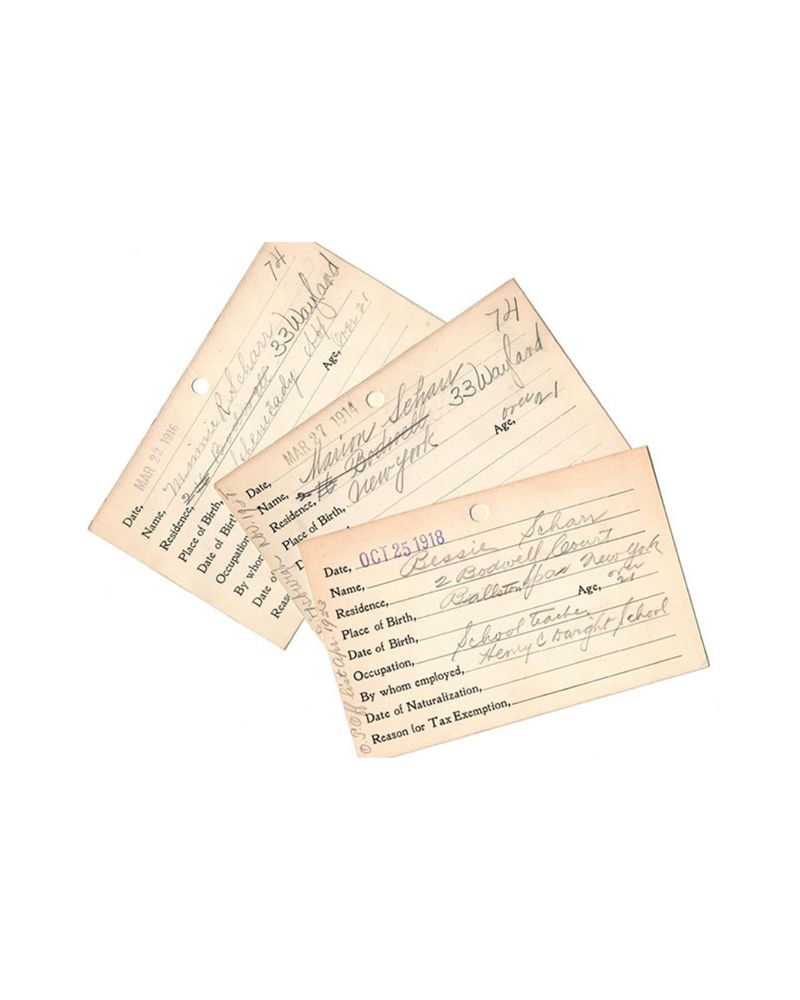 74
MAR 22 1916
Date,
Name, Minnie R. Scharr
33 Wayland
Residence, 2 Bodwell
Place of Birth, Schenectady NY
Date of Birt
Age, Over 21
Occupation
By whom
Date o
Reas
74
Date, MAR 27 1914
Name, Marion Scharr
33 Wayland
Residence, Bodwell
Place of Birth, New York
Age, over 21
D
Date, OCT 25 1918
Name, Bessie Scharr
Residence, 2 Bodwell Court
Place of Birth, Ballston Spa New York
Date of Birth, Age, over 21
Occupation, School Teacher
By whom employed, Henry C Dwight School
Date of Naturalization,
Reason for Tax Exemption,
Off List Apr. 1926